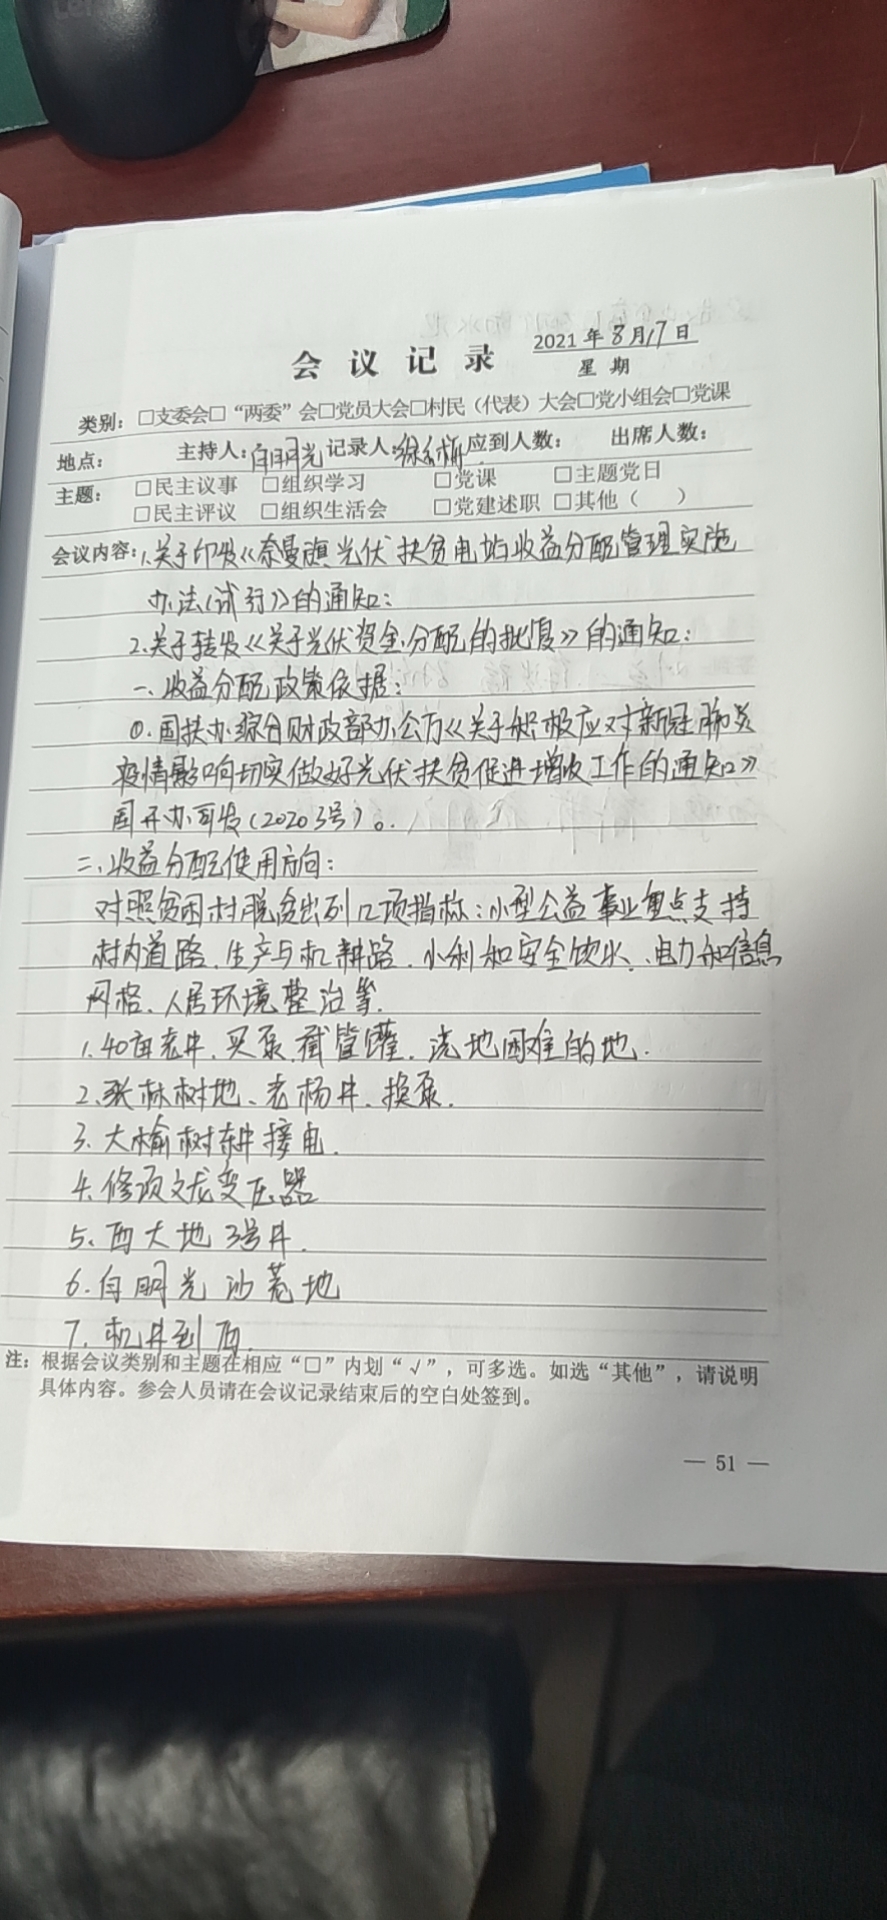 会议记录
2021年8月17日
星期
类别：□支委会□“两委”会□党员大会□村民（代表）大会□党小组会□党课
地点： 主持人：白明光 记录人： 应到人数： 出席人数：
主题： □民主议事 □组织学习 □党课 □主题党日
□民主评议 □组织生活会 □党建述职 □其他（ ）
会议内容：1.关于印发《奈曼旗光伏扶贫电站收益分配管理实施
办法（试行）》的通知：
2.关于转发《关于光伏资金分配的批复》的通知：
一、收益分配政策依据：
①.国扶办综合财政部办公厅《关于积极应对新冠肺炎
疫情影响切实做好光伏扶贫促进增收工作的通知》
国开办司发（2020 3号）。
二、收益分配使用方向：
对照贫困村脱贫出列12项指标：小型公益事业重点支持
村内道路、生产与机耕路、小利和安全饮水、电力和信息
网格、人居环境整治等.
1.40亩老井、买泵、管、浇地困难的地.
2.张林树地、老杨井、换泵.
3.大榆树东井接电.
4.修项文龙变压器
5.西大地3号井.
6.白明光沙荒地
7.机井到
注：根据会议类别和主题在相应“□”内划“√”，可多选。如选“其他”，请说明
具体内容。参会人员请在会议记录结束后的空白处签到。
— 51 —